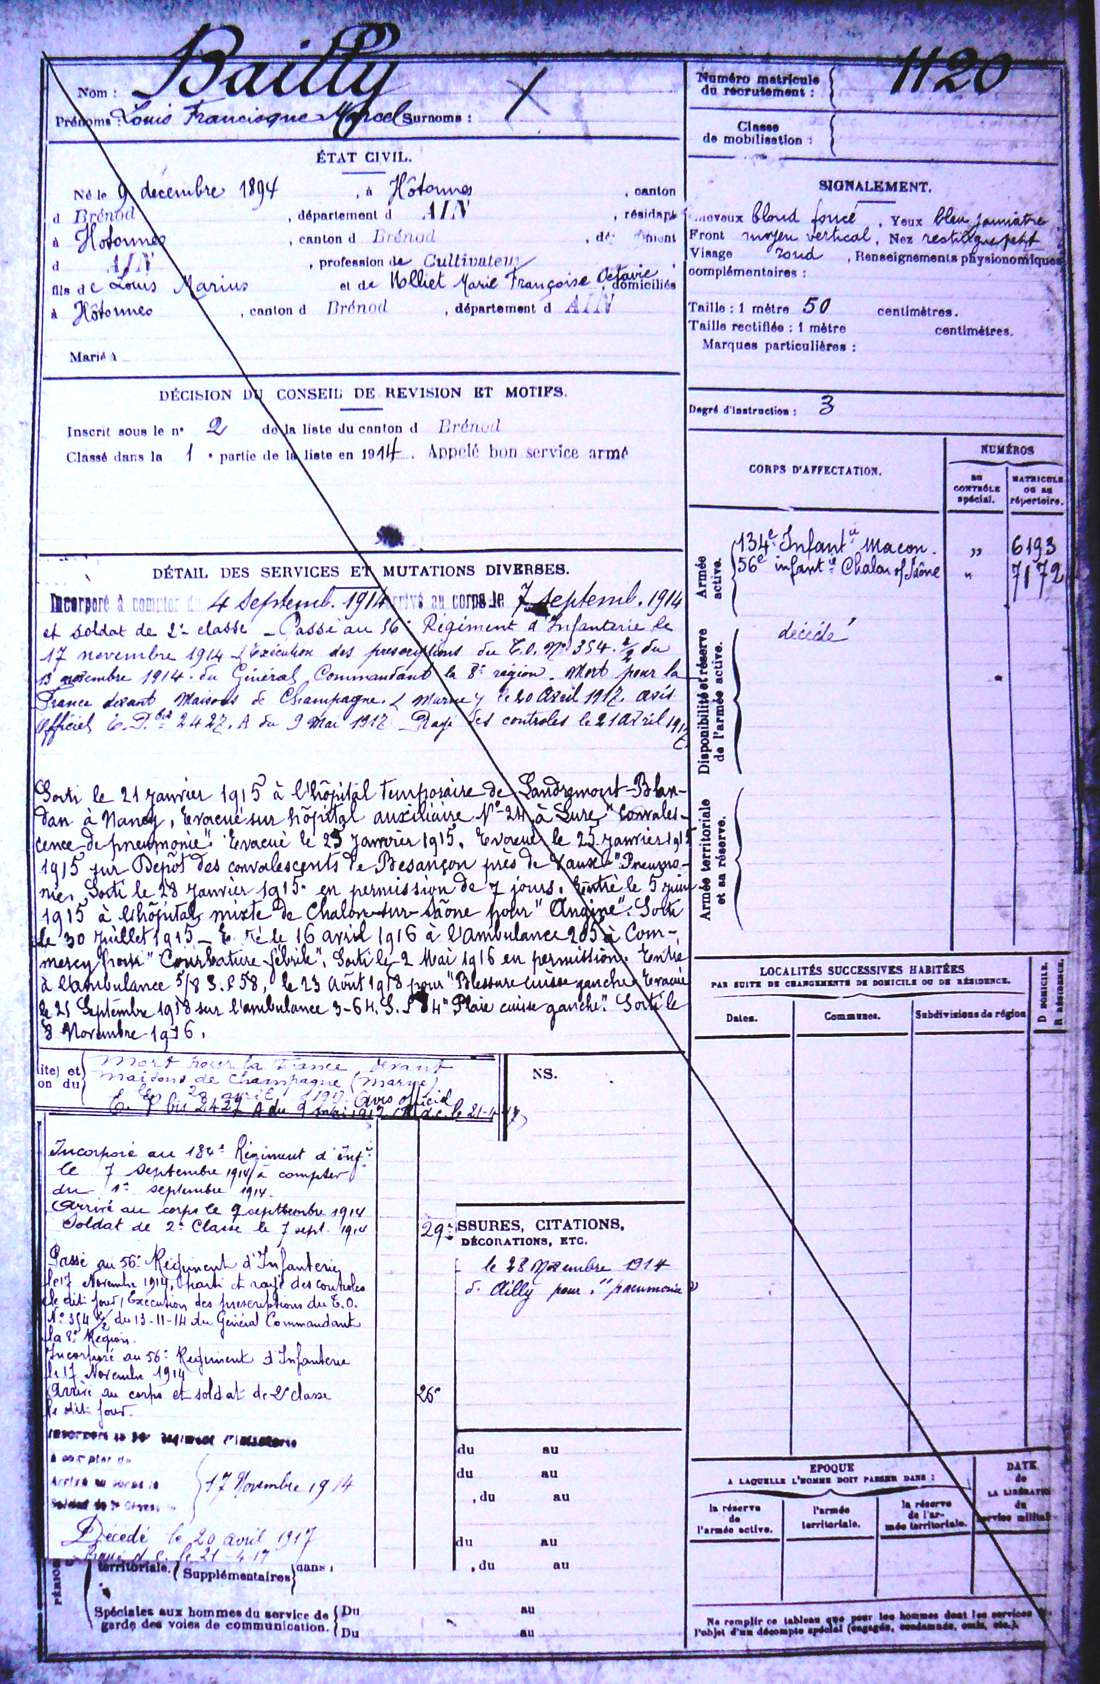 Nom : Bailly
Prénoms : Louis Francisque Marcel Surnoms : X
ÉTAT CIVIL.
Né le 9 décembre 1894, à Hôtonnes, canton
d Brénod, département d AIN, résidant
à Hotonnes, canton d Brénod,
d AIN, profession de Cultivateur
fils de Louis Marius et de Molliet Marie Françoise Octavie, domiciliés
à Hôtonnes, canton d Brénod, département d AIN
Marié à
DÉCISION DU CONSEIL DE REVISION ET MOTIFS.
Inscrit sous le n° 2 de la liste du canton d Brénod
Classé dans la 1e partie de la liste en 1914. Appelé bon service armé
DÉTAIL DES SERVICES ET MUTATIONS DIVERSES.
Incorporé à compter du 4 Septemb. 1914 arrivé au corps le 7 Septemb. 1914
et soldat de 2e classe _ Passé au 56e Régiment d'Infanterie le
17 novembre 1914 _ (Exécution des prescriptions du T.O. No 354 2/2 du
13 novembre 1914 du Général Commandant la 8e région. Mort pour la
France devant Maisons de Champagne. (Marne) le 20 Avril 1917 avis
Officiel E.P.bis 2427. A du 9 Mai 1917 Rayé des controles le 21 avril 1917
Sorti le 21 janvier 1915 à l'hôpital temporaire de Landremont-Blan-
dan à Nancy, Evacué sur hôpital auxiliaire No 24 à Lure "Convales-
cence de pneumonie" Evacué le 25 janvier 1915. Evacué le 25 janvier 1915
1915 sur Dépôt des convalescents de Besançon près de Vaux "Pneumo-
nie. Sorti le 28 janvier 1915 en permission de 7 jours. Entré le 5 juin
1915 à l'hôpital mixte de Chalon-sur-Saône pour "Angine". Sorti
le 30 juillet 1915 _ Entré le 16 avril 1916 à l'ambulance 205 à Com-
mercy pour "Courbature fébrile". Sorti le 2 Mai 1916 en permission. Entré
à l'ambulance 5/8 S.P. 58, le 23 Août 1918 pour "Blessure cuisse gauche" Evacué
le 21 Septembre 1918 sur l'ambulance 3-64. S.P. 84 "Plaie cuisse gauche". Sorti le
8 Novembre 1916.
ite) et
on du
Mort pour la France devant
maisons de Champagne (Marne)
20 avril 1917. Avis officiel
E. P bis 2427 A du 9 mai 1917 le 21-4-17
NS.
Incorporé au 134e Régiment d'Infie
le 7 septembre 1914 à compter
du 1er septembre 1914.
Arrivé au corps le 7 septembre 1914
Soldat de 2e Classe le 7 sept. 1914
29e
Passé au 56e Régiment d'Infanterie
le 17 Novembre 1914, parti et rayé des controles
le dit jour, Exécution des prescriptions du T.O.
No 354 2/2 du 13-11-14 du Général Commandant
la 8e Région.
Incorporé au 56e Régiment d'Infanterie
le 17 Novembre 1914
Arrivé au corps et soldat de 2e classe
le dit jour.
26e
Incorporé au 56e Régiment d'Infanterie
à compter du
Arrivé au corps le
Soldat de 2e Classe
17 Novembre 1914
Décédé le 20 avril 1917
Rayé d. c. le 21-4-17
SSURES, CITATIONS,
DÉCORATIONS, ETC.
le 28 Novembre 1914
d. Ailly pour "pneumonie"
du au
du au
, du au
du au
, du au
territoriale. Supplémentaires dans,
Spéciales aux hommes du service de
garde des voies de communication.
Du au
Du au
Numéro matricule
du recrutement : 1120
Classe
de mobilisation :
SIGNALEMENT.
Cheveux blond foncé, Yeux bleu jaunâtre
Front moyen vertical, Nez rectiligne petit
Visage rond, Renseignements physionomiques
complémentaires :
Taille : 1 mètre 50 centimètres.
Taille rectifiée : 1 mètre centimètres.
Marques particulières :
Degré d'instruction : 3
CORPS D'AFFECTATION.
NUMÉROS
au
CONTRÔLE
spécial.
MATRICULE
ou au
répertoire.
Armée
active.
134e Infantie Macon. " 6193
56e infantie Chalon s/ Saône " 7172
Disponibilité et réserve
de l'armée active.
décédé
Armée territoriale
et sa réserve.
LOCALITÉS SUCCESSIVES HABITÉES
PAR SUITE DE CHANGEMENTS DE DOMICILE OU DE RÉSIDENCE.
Dates. Communes. Subdivisions de région
D DOMICILE.
R RÉSIDENCE.
EPOQUE
A LAQUELLE L'HOMME DOIT PASSER DANS :
la réserve
de
l'armée active.
l'armée
territoriale.
la réserve
de l'ar-
mée territoriale.
DATE
de
LA LIBÉRATION
du
service militaire
Ne remplir ce tableau que pour les hommes dont les services
l'objet d'un décompte spécial (engagés, condamnés, omis, etc.).